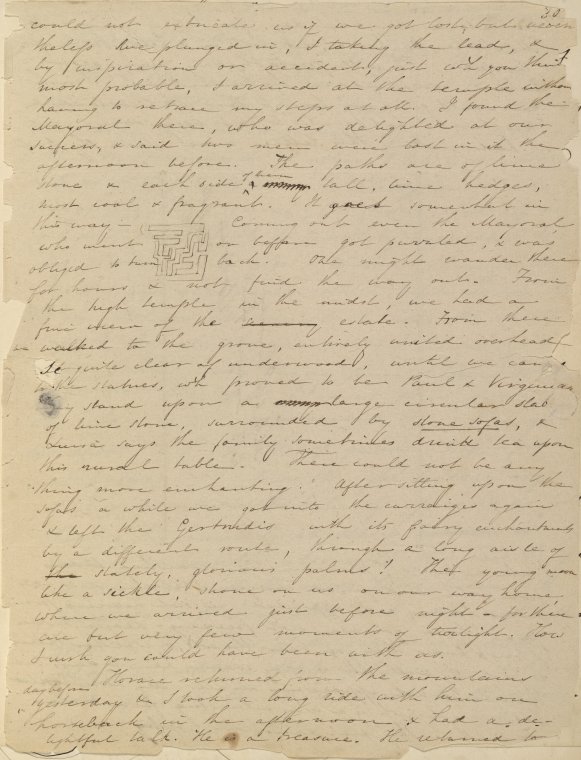 30
could not extricate us if we got lost, but never
theless we plunged in, I taking the lead, &
by inspiration or accident, just wh. you think
most probable, I arrived at the temple without
having to retrace my steps at all. I found the
Mayoral there, who was delighted at our
success, & said two men were lost in it the
afternoon before. The paths are of lime
stone & each side of them tall, lime hedges,
most cool & fragrant. It goes somewhat in
this way — Coming out even the Mayoral
who went on before got puzzled, & was
obliged to turn back. One might wander there
for hours & not find the way out. From
the high temple in the midst, we had a
fine view of the estate. From there
we walked to the grove, entirely united overhead
& quite clear of underwood, until we came
to the statues, wh proved to be Paul & Virginia
They stand upon a large circular slab
of lime stone, surrounded by stone sofas, &
Luisa says the family sometimes drink tea upon
this rural table. There could not be any
thing more enchanting! After sitting upon the
sofas a while we got into the carraiges again
& left the Gertrudis with its faery enchantments
by a different route, through a long aisle of
stately, glorious palms! The young moon
like a sickle, shone on us on our way home
where we arrived just before night — for there
are but very few moments of twilight. How
I wish you could have been with us.
Horace returned from the mountains
day before
yesterday & I took a long ride with him on
horseback in the afternoon & had a de-
lightful talk. He is a treasure. He returned to